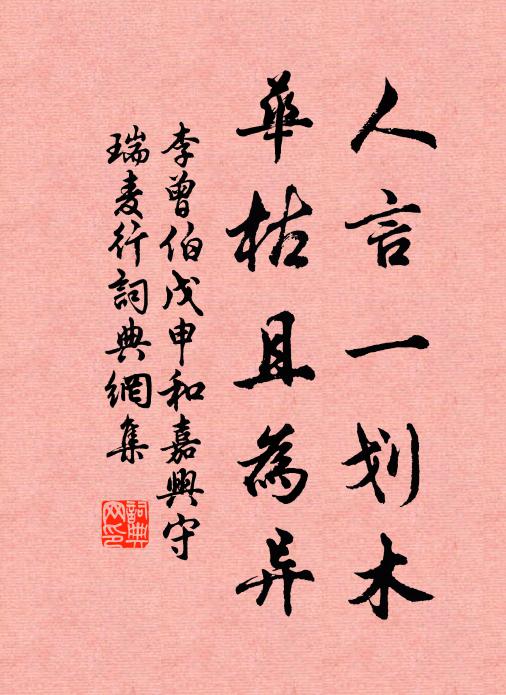 人言一划木
華枯且為异
李曾伯戊申和嘉興守
瑞麦行詞典網集
詞典网印